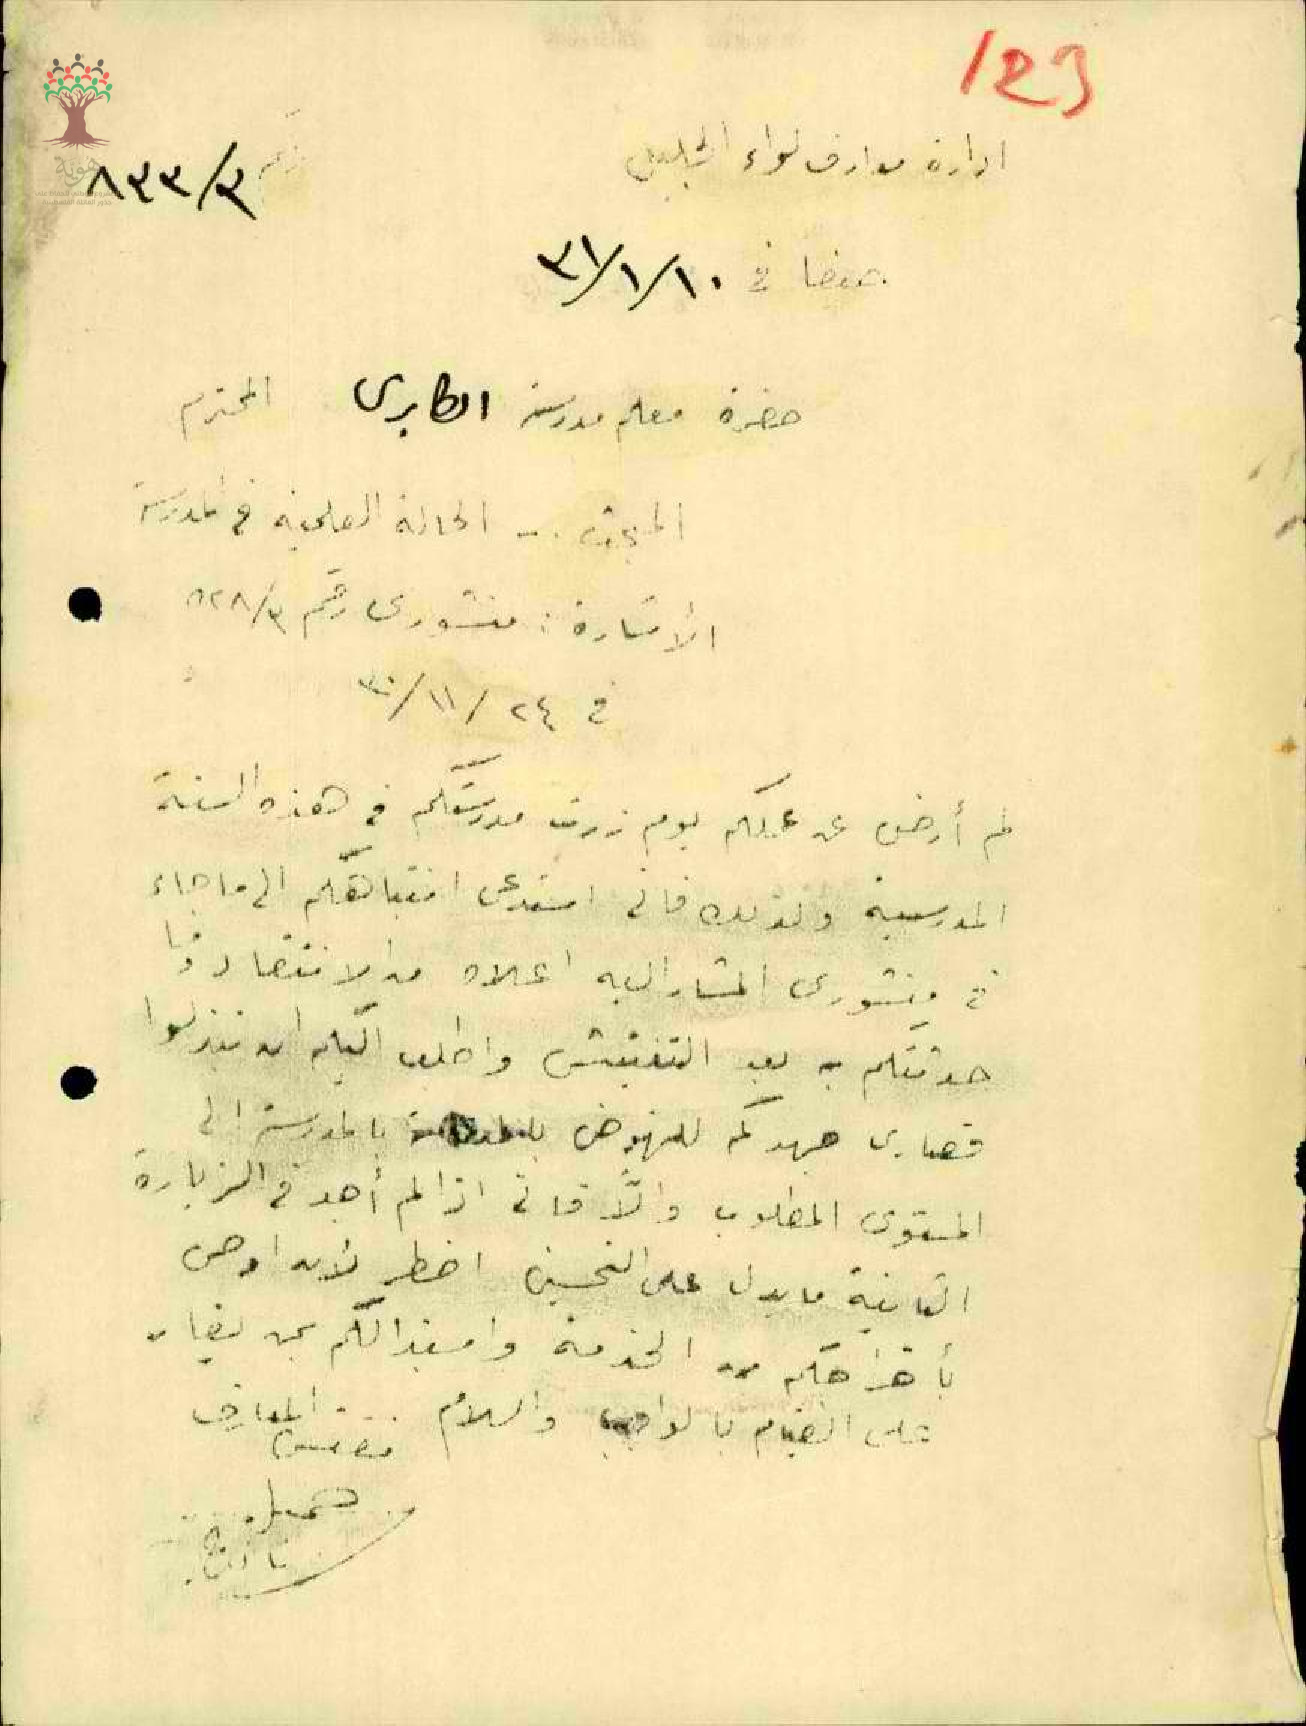 123
ادارة معارف لواء الجليل
رقم ٨٣٣/٣
حيفا في ٣١/١/١٠
حضرة معلم مدرسة الكابري المحترم
المبحث :- الحالة العلمية في المدرسة
الاشارة : منشوري رقم ٨٢٨/٣
في ٢٤ /١١/ ٣٠
لم أرض عن عملكم يوم زرت مدرستكم في هذه السنة
المدرسية ولذلك فاني استدعي انتباهكم الى ما جاء
في منشوري المشار اليه اعلاه من الانتقاد وما
حدثتكم به بعد التفتيش واطلب اليكم ان تبذلوا
قصارى جهدكم للنهوض بالمدرسة الى
المستوى المطلوب والّا فاني اذا لم أجد في الزيارة
الثانية ما يدل على التحسين اضطر لان اوصي
بأخراجكم من الخدمة واستبدالكم بمن يغار
على القيام بالواجب والسلام
مفتش المعارف
هوية